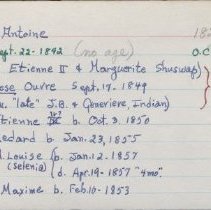 Antoine 182
Sept. 22-1842 (no age) O.C
Etienne II & Marguerite Shuswap
Ouvre Sept. 17. 1849
"late" J.B. & Genevieve, Indian)
Etienne b. Oct. 3, 1850
Medard b Jan. 23, 1855
M. Louise b. Jan. 12 - 1857
(Selenia) d. Apr. 19 - 1857 "4mo."
Maxime b. Feb. 10 - 1853